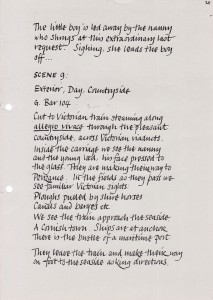 The little boy is led away by the nanny
who shrugs at this extraordinary last
request. Sighing, she leads the boy
off...
SCENE 9.
Exterior, Day, Countryside
G. Bar 104
Cut to Victorian train steaming along
allegro vivace through the pleasant
countryside. across Victorian viaducts.
Inside the carriage we see the nanny
and the young lad, his face pressed to
the glass. They are making their way to
Penzance. In the fields as they pass we
see familiar Victorian sights
Ploughs pulled by shire horses
Canals and barges etc.
We see the train approach the seaside
A Cornish town. Ships are at anchor.
There is the bustle of a maritime port
They leave the train and make their way
on foot to the seaside asking directions.